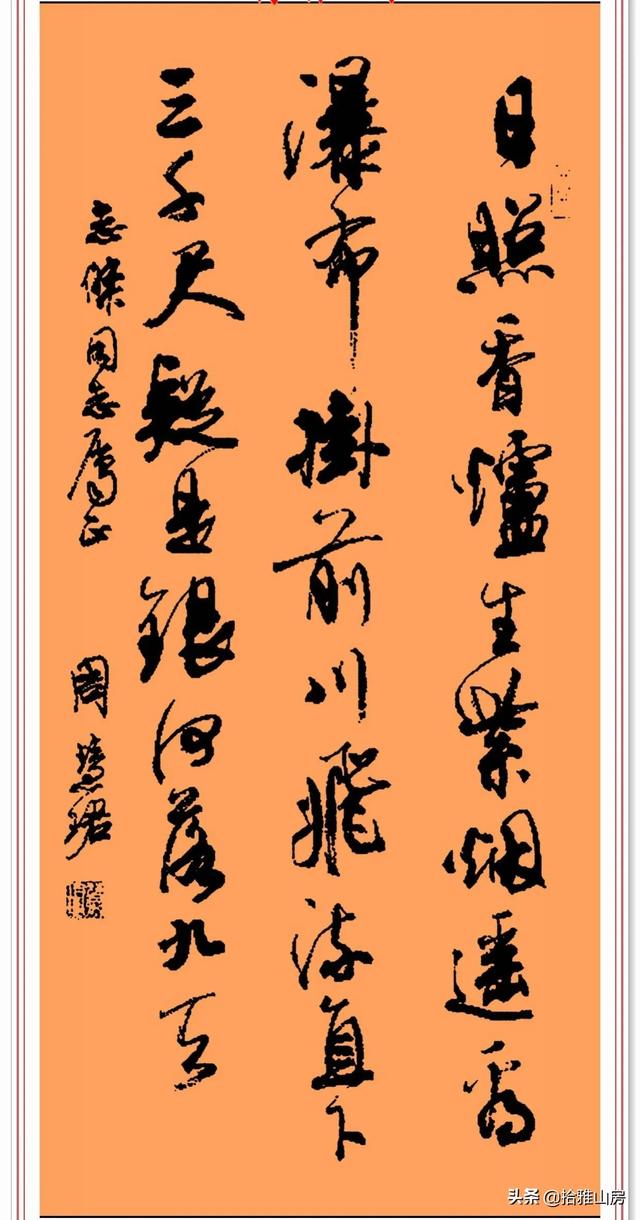 日照香爐生紫烟遥看
瀑布掛前川飛流直下
三千尺疑是銀河落九天
志傑同志属正
周慧珺
头条 @拾雅山房